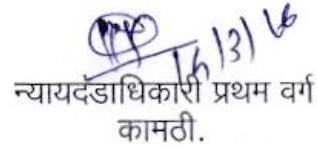 16/3/16
न्यायदंडाधिकारी प्रथम वर्ग
कामठी.